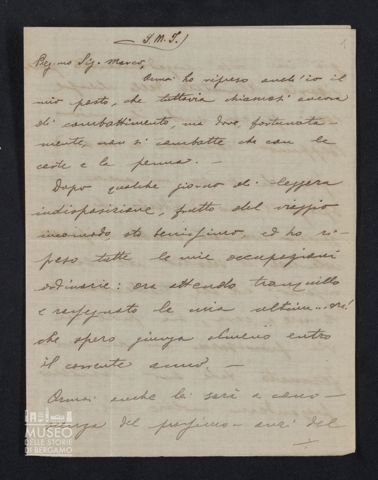 J. M. J.
Preg.mo Sig. Marco,
Ormai ho ripreso anch'io il
mio posto, che tuttavia chiamasi ancora
di combattimento, ma dove, fortunata-
mente, non si combatte che con le
carte e la penna. —
Dopo qualche giorno di leggera
indisposizione, frutto del viaggio
incomodo, sto benissimo, ed ho ri-
preso tutte le mie occupazioni
ordinarie: ora attendo tranquillo
e rassegnato la mia ultima...
che spero giunga almeno entro
il corrente anno. —
Ormai anche lei sarà a cono-
scenza del prossimo — anzi del
MUSEO
DELLE STORIE
DI BERGAMO